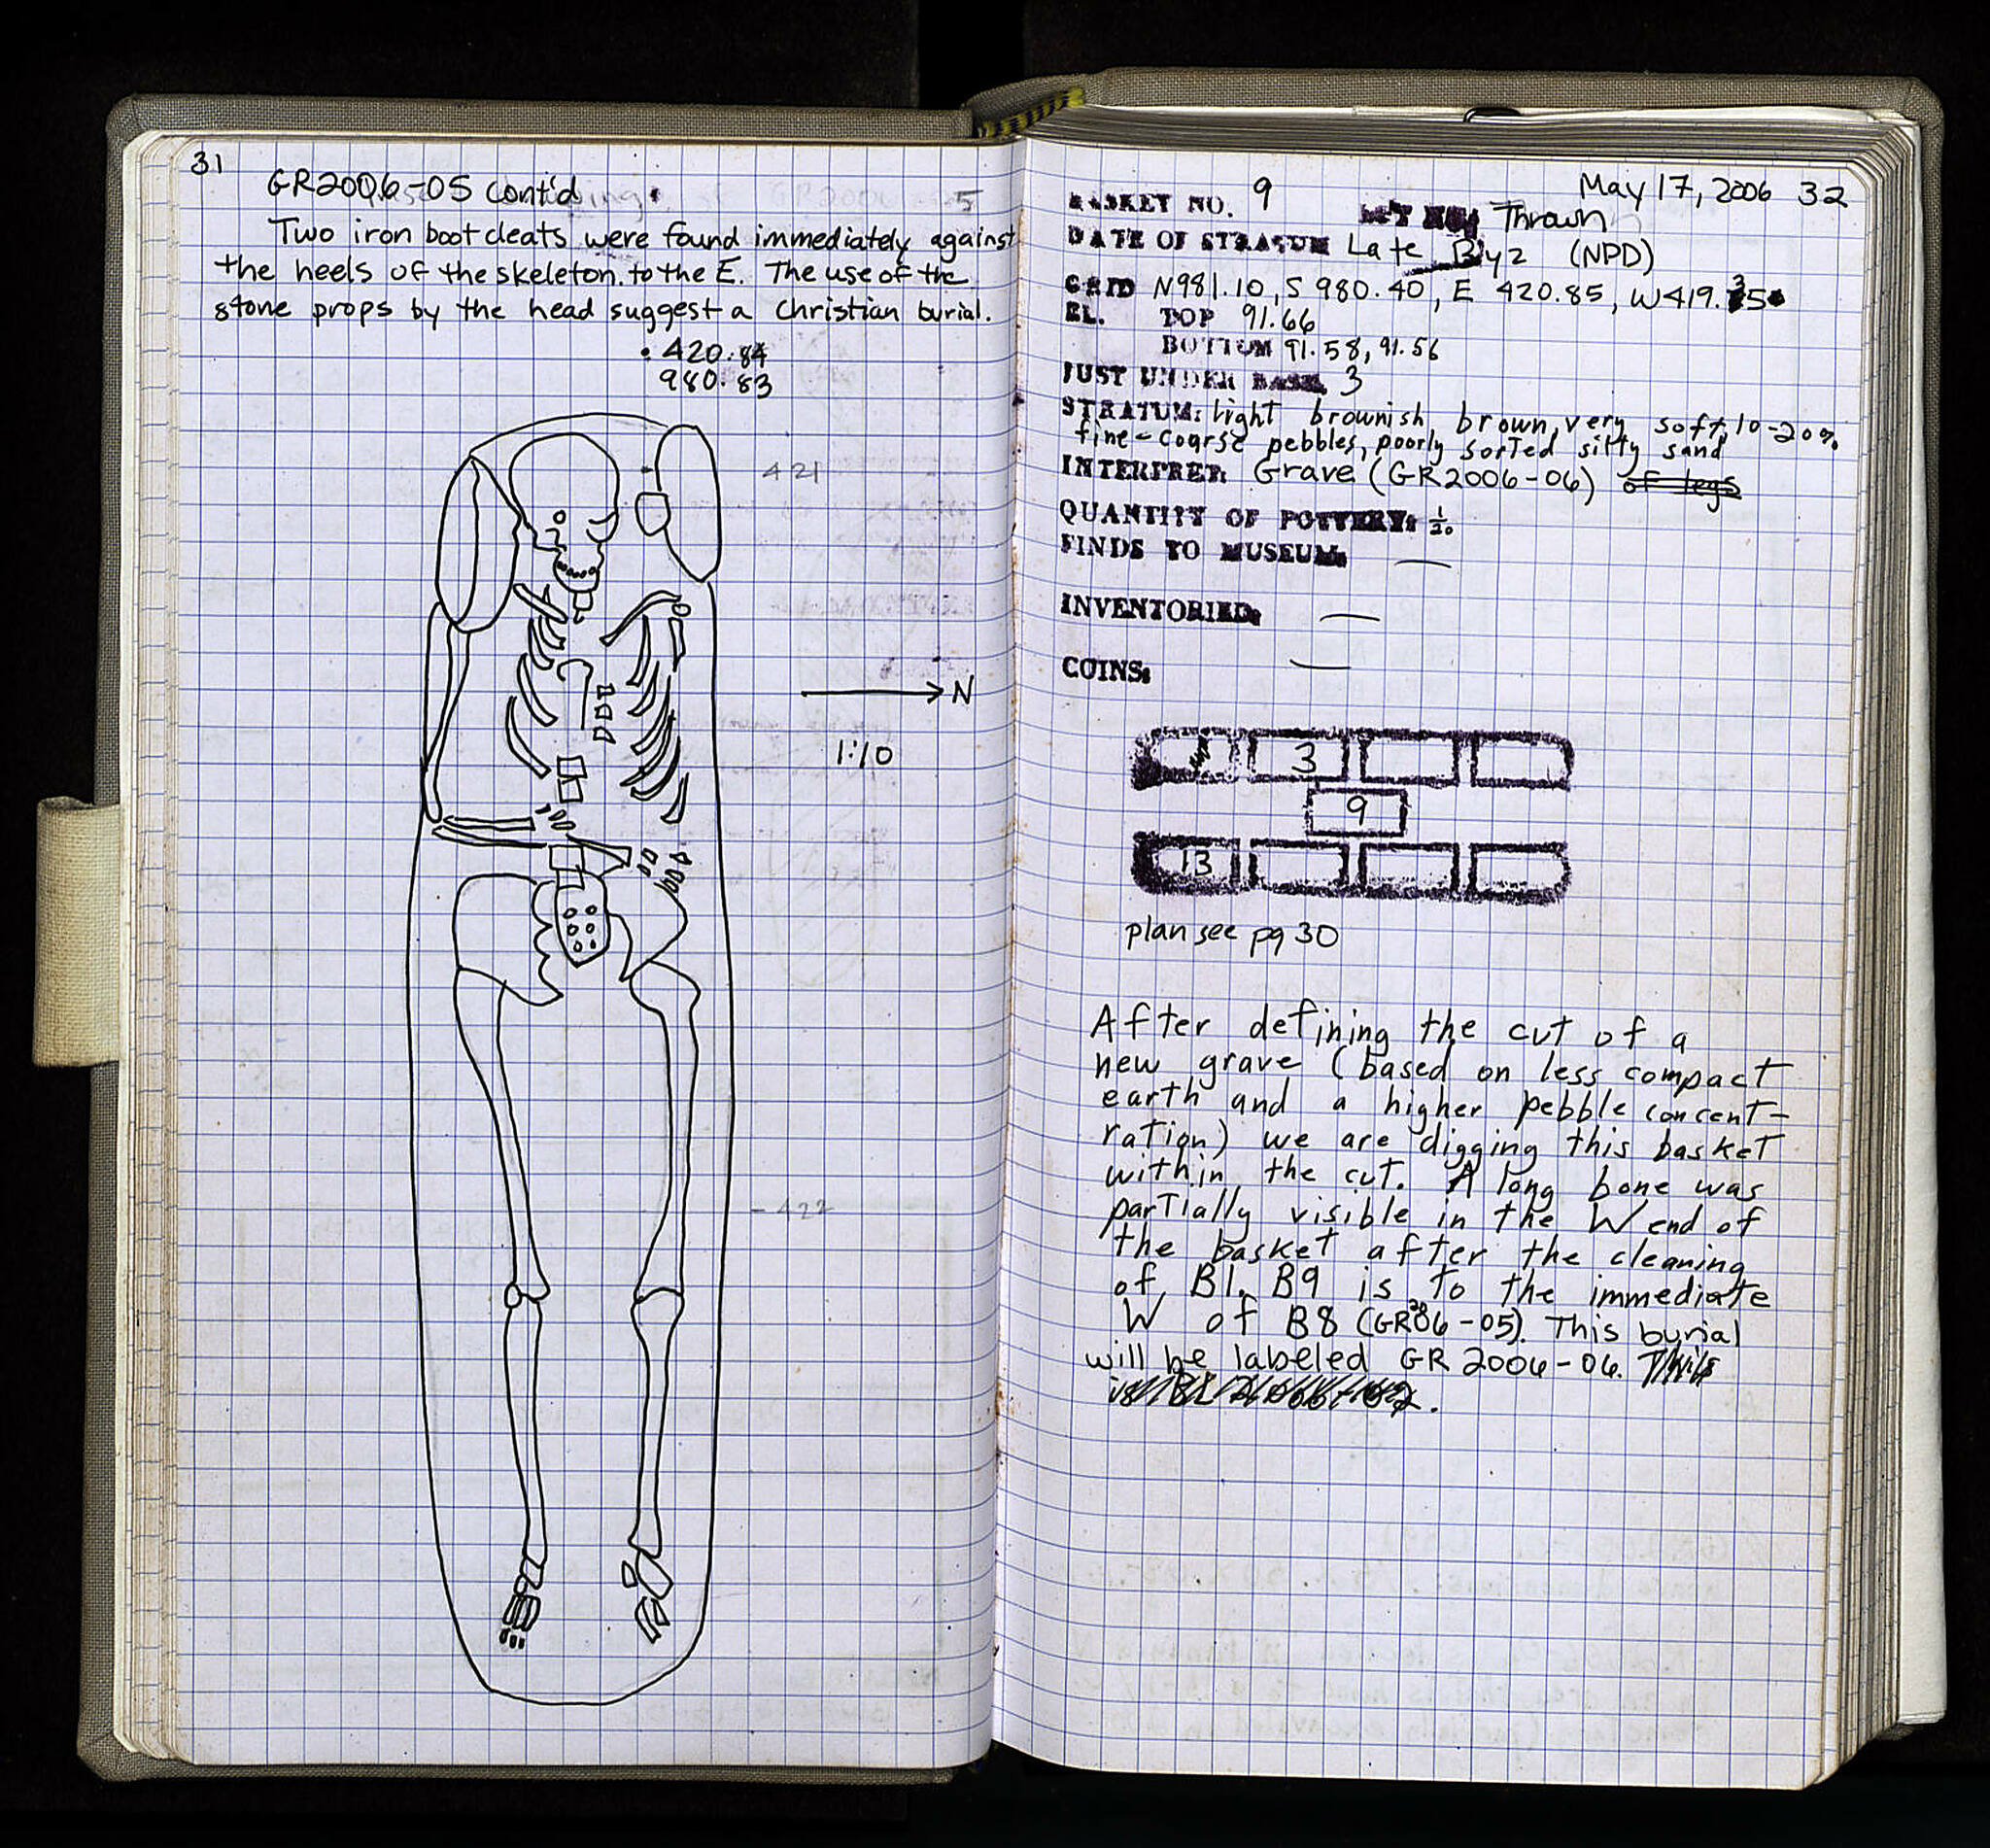 31
GR2006-05 cont'd
Two iron boot cleats were found immediately against
the heels of the skeleton. to the E. The use of the
stone props by the head suggest a Christian burial.
• 420.84
980.83
421
N
1:10
- 422
May 17, 2006 32
BASKET NO. 9
LOT NO. Thrown
DATE OF STRATUM Late Byz (NPD)
GRID N981.10, S 980.40, E 420.85, W419.35
EL. TOP 91.66
BOTTOM 91.58, 91.56
JUST UNDER BASK. 3
STRATUM: light brownish brown, very soft, 10-20%
fine-coarse pebbles, poorly sorted silty sand
INTERPRET. Grave (GR2006-06) of legs
QUANTITY OF POTTERY: 1/20
FINDS TO MUSEUM: —
INVENTORIED: —
COINS: —
3
9
13
plan see pg 30
After defining the cut of a
new grave (based on less compact
earth and a higher pebble concent-
ration) we are digging this basket
within the cut. A long bone was
partially visible in the W end of
the basket after the cleaning
of B1. B9 is to the immediate
W of B8 (GR2006-05). This burial
will be labeled GR 2006-06. This